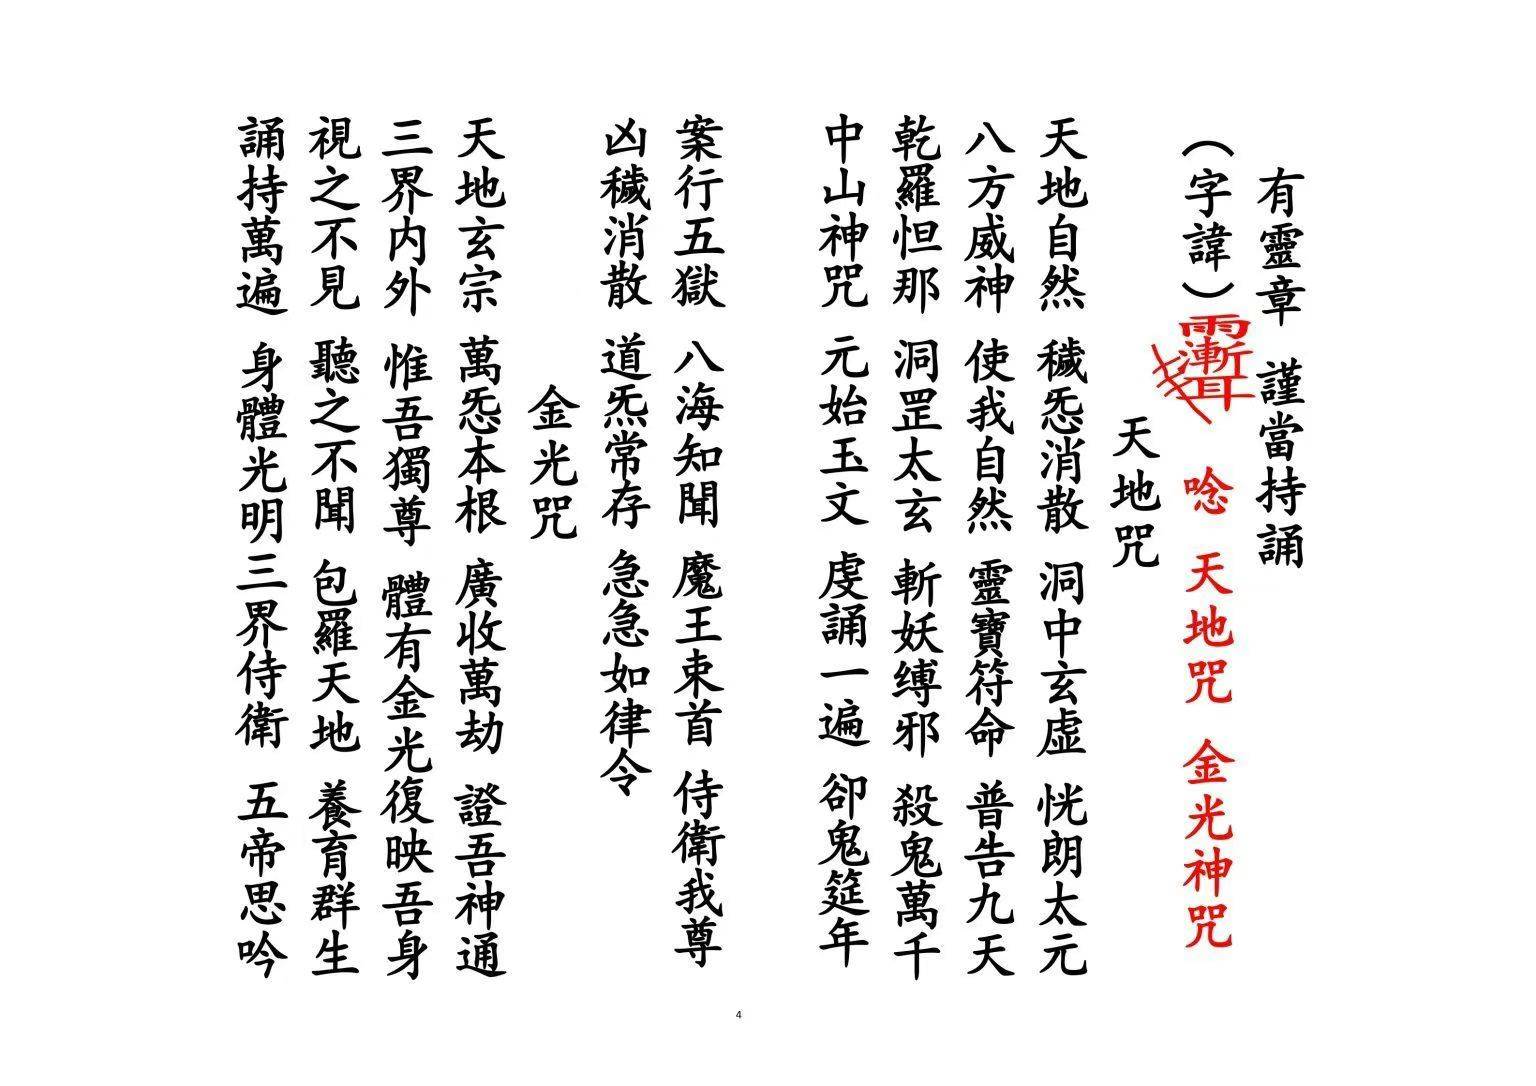 有靈章 謹當持誦
（字諱） 唸 天地咒 金光神咒
天地咒
天地自然 穢炁消散 洞中玄虛 恍朗太元
八方威神 使我自然 靈寶符命 普告九天
乾羅怛那 洞罡太玄 斬妖縛邪 殺鬼萬千
中山神咒 元始玉文 虔誦一遍 卻鬼筵年
案行五獄 八海知聞 魔王束首 侍衛我尊
凶穢消散 道炁常存 急急如律令
金光咒
天地玄宗 萬炁本根 廣收萬劫 證吾神通
三界内外 惟吾獨尊 體有金光 復映吾身
視之不見 聽之不聞 包羅天地 養育群生
誦持萬遍 身體光明 三界侍衛 五帝思吟
4